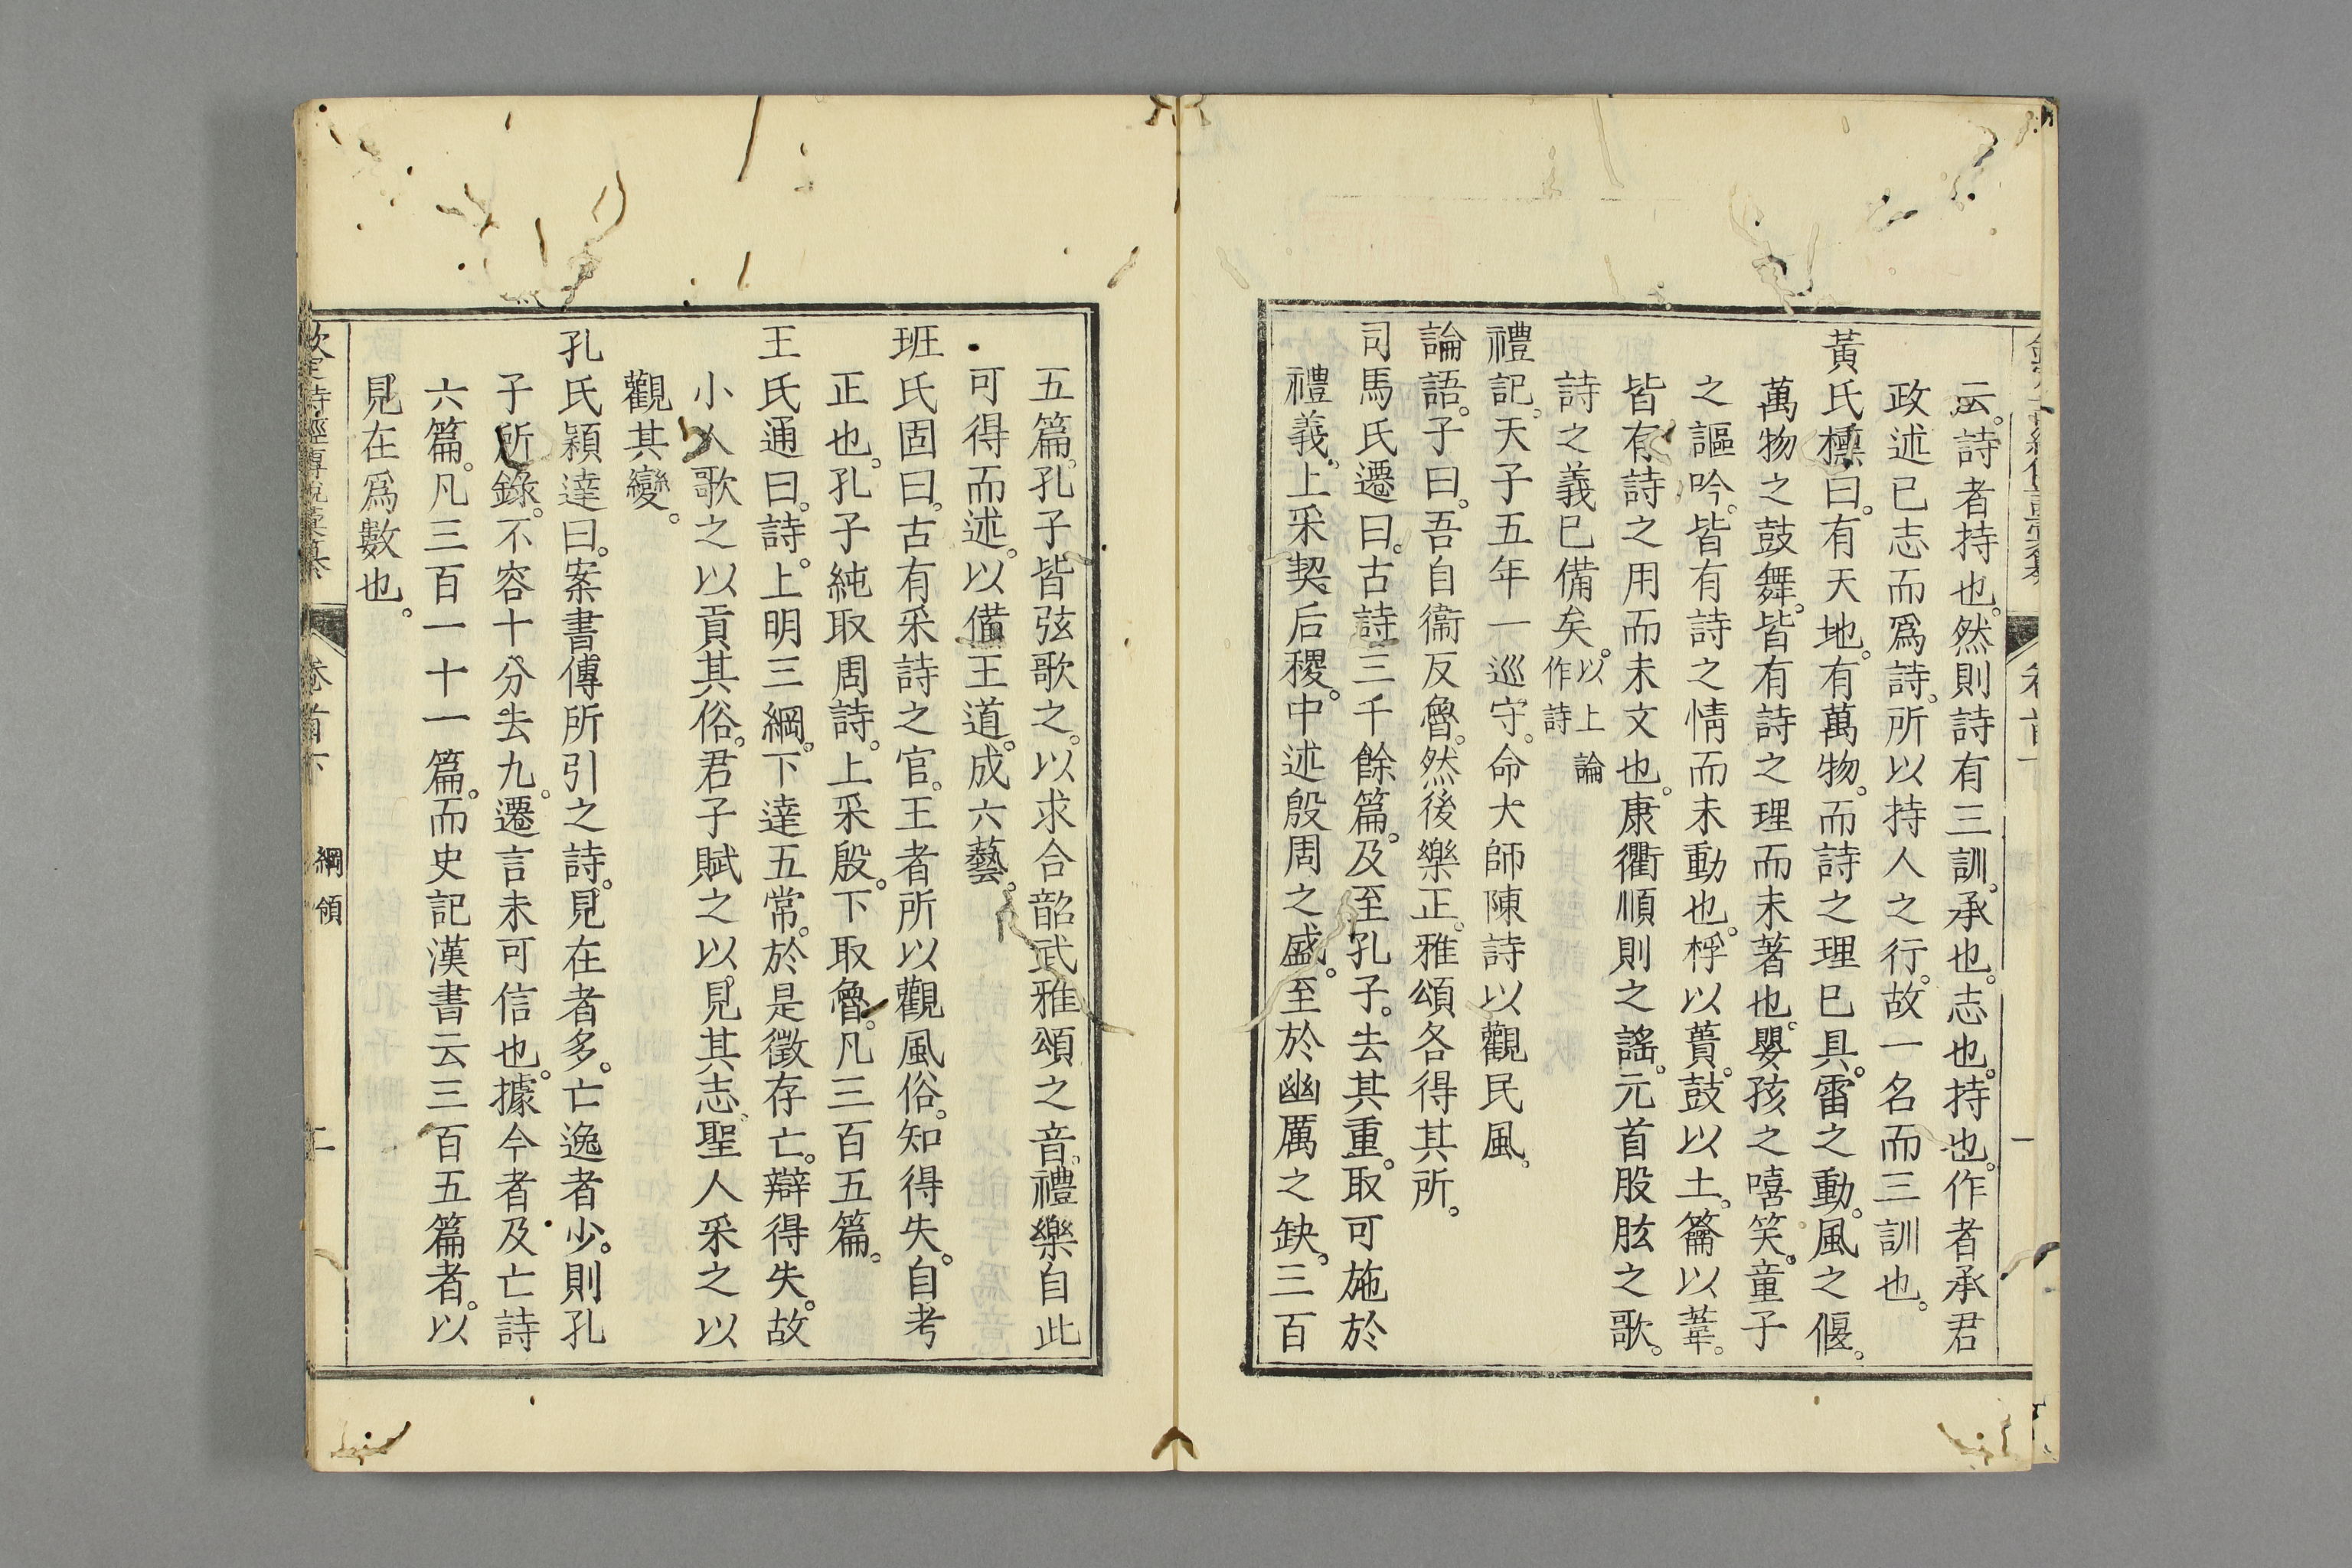 云。詩者持也。然則詩有三訓。承也。志也。持也。作者承君
政述已志而爲詩。所以持人之行。故一名而三訓也。
黃氏櫄曰。有天地。有萬物。而詩之理已具。雷之動。風之偃。
萬物之鼓舞。皆有詩之理而未著也。嬰孩之嘻笑。童子
之謳吟。皆有詩之情而未動也。桴以蕢。鼓以土。籥以葦。
皆有詩之用而未文也。康衢順則之謠。元首股肱之歌。
詩之義已備矣。以上論作詩
禮記。天子五年一巡守。命大師陳詩以觀民風。
論語。子曰。吾自衞反魯。然後樂正。雅頌各得其所。
司馬氏遷曰。古詩三千餘篇。及至孔子。去其重。取可施於
禮義。上采契后稷。中述殷周之盛。至於幽厲之缺。三百
五篇。孔子皆弦歌之。以求合韶武雅頌之音。禮樂自此
可得而述。以備王道。成六藝。
班氏固曰。古有采詩之官。王者所以觀風俗。知得失。自考
正也。孔子純取周詩。上采殷。下取魯。凡三百五篇。
王氏通曰。詩。上明三綱。下達五常。於是徵存亡。辯得失。故
小人歌之以貢其俗。君子賦之以見其志。聖人采之以
觀其變。
孔氏穎達曰。案書傳所引之詩。見在者多。亡逸者少。則孔
子所錄。不容十分去九。遷言未可信也。據今者及亡詩
六篇。凡三百一十一篇。而史記漢書云三百五篇者。以
見在爲數也。
欽定詩經傳說彙纂 卷首下 綱領 二